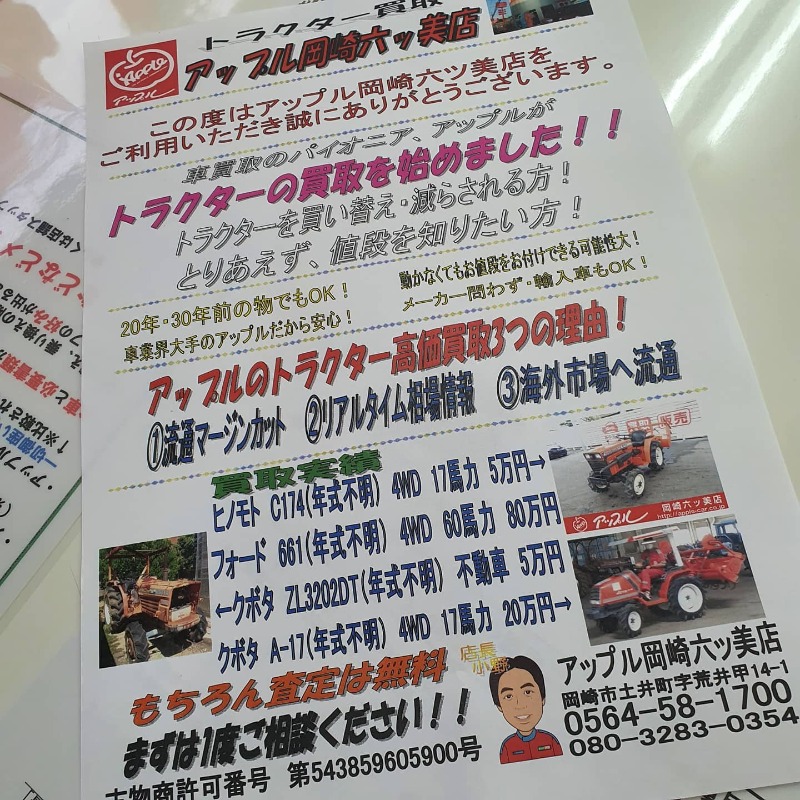 トラクター買取
アップル岡崎六ッ美店
Apple
アップル
この度はアップル岡崎六ツ美店を
ご利用いただき誠にありがとうございます。
車買取のパイオニア、アップルが
トラクターの買取を始めました！！
トラクターを買い替え・減らされる方！
とりあえず、値段を知りたい方！
20年・30年前の物でもOK！
車業界大手のアップルだから安心！
動かなくてもお値段をお付けできる可能性大！
メーカー問わず・輸入車もOK！
アップルのトラクター高価買取3つの理由！
①流通マージンカット ②リアルタイム相場情報 ③海外市場へ流通
買取実績
ヒノモト C174(年式不明) 4WD 17馬力 5万円→
フォード 661(年式不明) 4WD 60馬力 80万円
←クボタ ZL3202DT(年式不明) 不動車 5万円
クボタ A-17(年式不明) 4WD 17馬力 20万円→
販売
アップル 岡崎六ッ美店
http://apple-car.co.jp
もちろん査定は無料
まずは1度ご相談ください！！
古物商許可番号 第543859605900号
店長
アップル岡崎六ッ美店
岡崎市土井町字荒井甲14-1
0564-58-1700
080-3283-0354